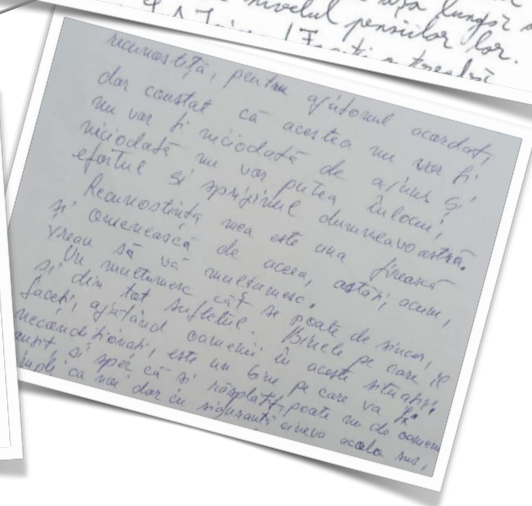 lungor
nivelul pensiilor lor.
recunostiță, pentru ajutorul acordat,
dar constat că acestea nu vor fi
nu vor fi niciodată de ajuns și
niciodată nu vor putea înlocui,
efortul și sprijinul dumneavoastră.
Recunostința mea este una firească
și omenească de aceea, astăți, acum,
vreau să vă mulțumesc.
Vă mulțumesc cât se poate de sincer,
și din tot sufletul. Binele pe care îl
faceți, ajutând oamenii în aceste situații,
necondiționati, este un bine pe care va fi
și sper că și răsplătit, poate nu de oameni
simpli ca noi dar cu siguranță cineva acolo sus,